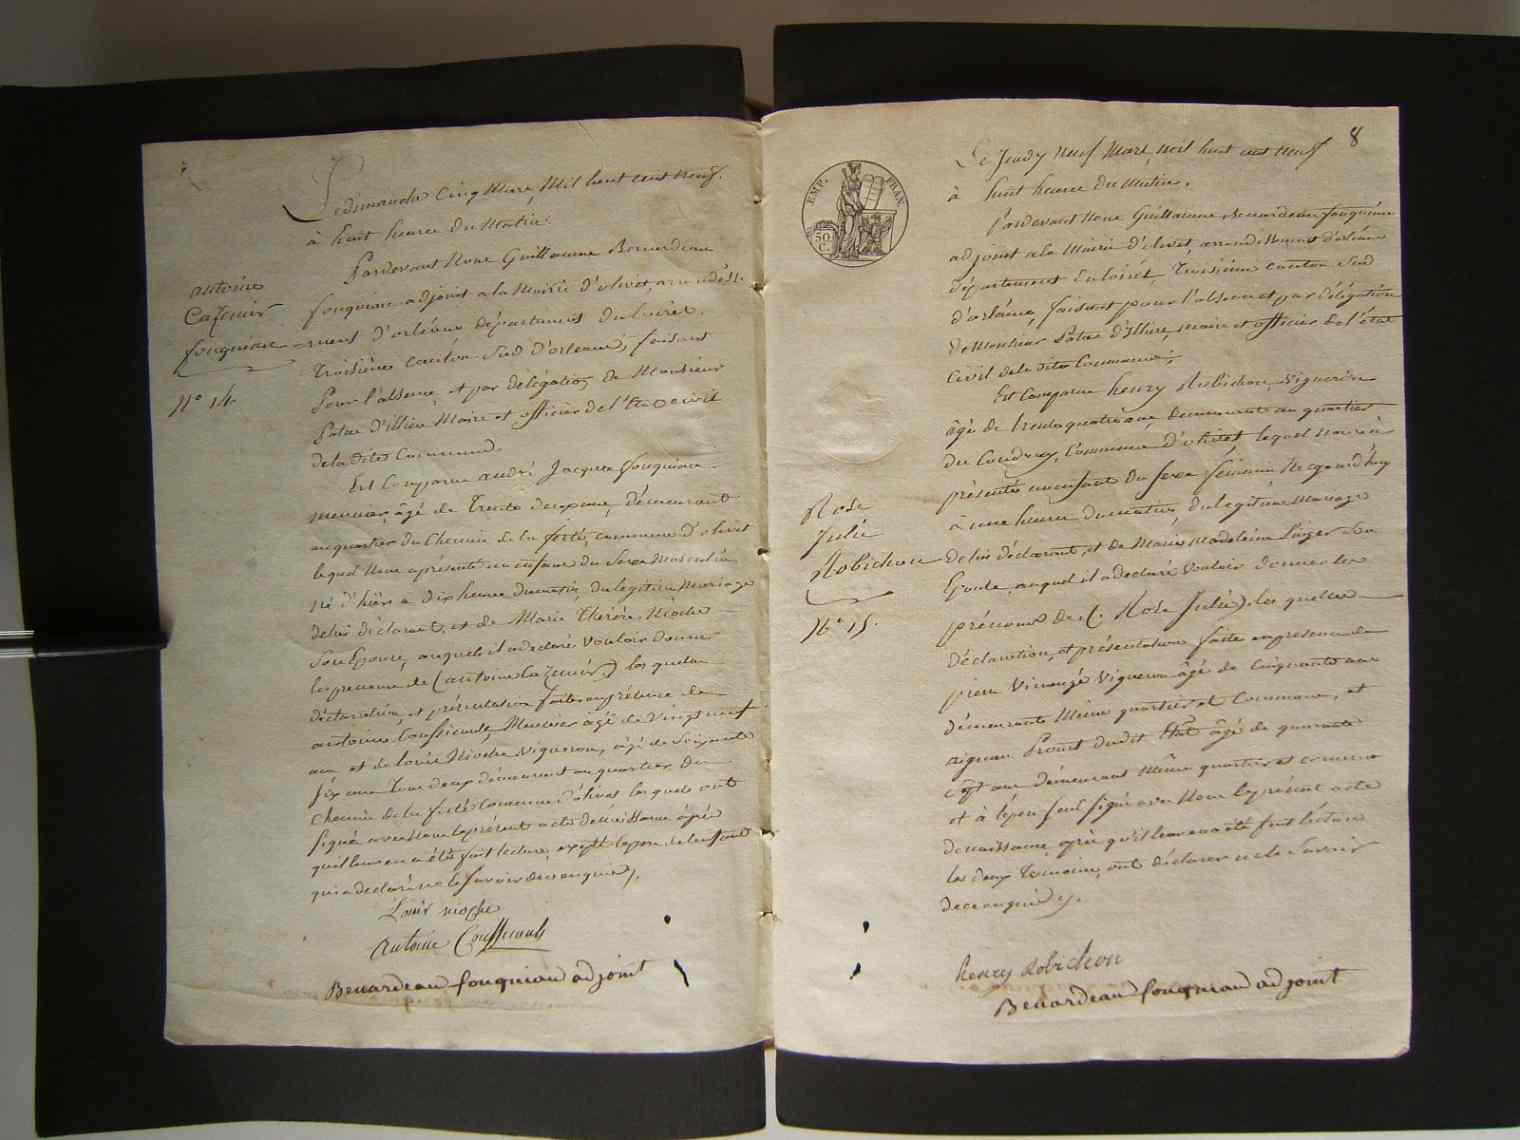 Le dimanche Cinq Mars, Mil huit cent neuf.
à huit heures du Matin.
Pardevant Nous Guillaume Benardeau
fouqueau adjoint a la Mairie d'olivet, arrondisse-
ment d'orléans département du loiret.
troisième canton Sud d'orleans, faisant
Pour l'absence, et par délégation de Monsieur
d'illiers Maire et officier de l'état civil
de la dite Commune.
Est Comparu andré Jacques fouqueau
meunier, âgé de Trente deux ans, demeurant
au quartier du Chemin de la ferté, commune d'olivet
lequel Nous a présenté un enfant du Sexe Masculin
né d'hier à Dix heures du matin, du légitime Mariage
de lui déclarant, et de Marie thérèse Nioche
Son Epouse, auquel il a déclaré Vouloir donner
les prenoms de (antoine Cazimir) les quelles
déclaration, et présentation faites en présence de
antoine Coussicault, Meunier âgé de Vingt neuf
ans et de louis Nioche Vigneron, âgé de Soixante
Six ans tous deux demeurant au quartier du
Chemin de la ferté Commune d'olivet lesquels ont
Signé avec Nous le présent acte de Naissance après
qu'il leur en a été fait lecture, excepté le pere de l'enfant
qui a declaré ne le Savoir de ce enquis.
Louis nioche
Antoine Coussicault
Benardeau fouqueau adjoint
antoine
Cazimir
fouqueau
N° 14.
8
EMP. FRAN.
50 C.
Le Jeudy Neuf Mars, mil huit cent neuf
à huit heures du Matin.
Pardevant Nous Guillaume Benardeau fouqueau
adjoint a la Mairie d'olivet arrondissement d'orléans
département du loiret, troisieme canton Sud
d'orléans, faisant pour l'absence et par délégation
de Monsieur d'illiers, maire et officier de l'état
Civil de la dite Commune;
Est Comparu henry Robichon, Vigneron
âgé de trente quatre ans, demeurant au quartier
du Coudray, Commune d'olivet, lequel Nous a
présenté un enfant du Sexe féminin Né aujourd'huy
à une heure du matin, du légitime Mariage
de lui déclarant, et de Marie Madeleine Son
Epouse, auquel il a declaré Vouloir donner les
prénoms de (Rose Julie) les quelles
Déclaration, et présentation faite en présence de
pierre Vigneron âgé de Cinquante ans
demeurant Même quartier et Commune, et
aignan Proust dudit état âgé de quarante
ans demeurant Même quartier et commune
et à le pere seul Signé avec Nous le présent acte
de naissance, après qu'il leur en a été fait lecture
les deux temoins, ont déclaré ne le Savoir
de ce enquis.
henry Robichon
Benardeau fouqueau adjoint
Rose
Julie
Robichon
N° 15.